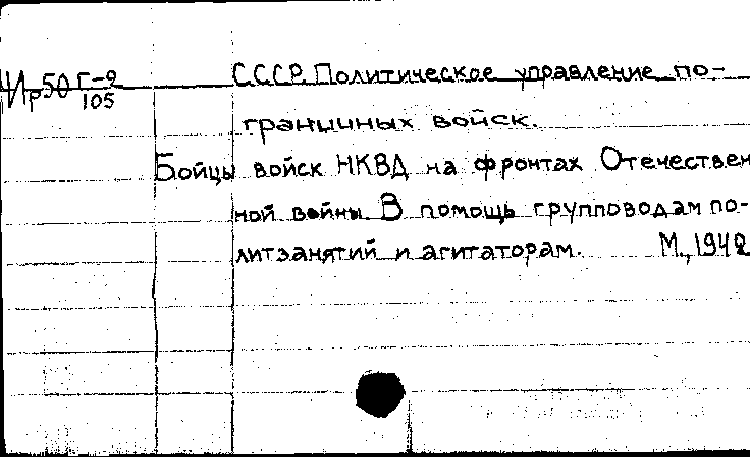 СССР. Политическое управление по-
Г-9
105
граничных войск.
Бойцы войск НКВД на фронтах Отечествен
ной войны. В помощь групповодам по-
литзанятий и агитаторам. М., 1942